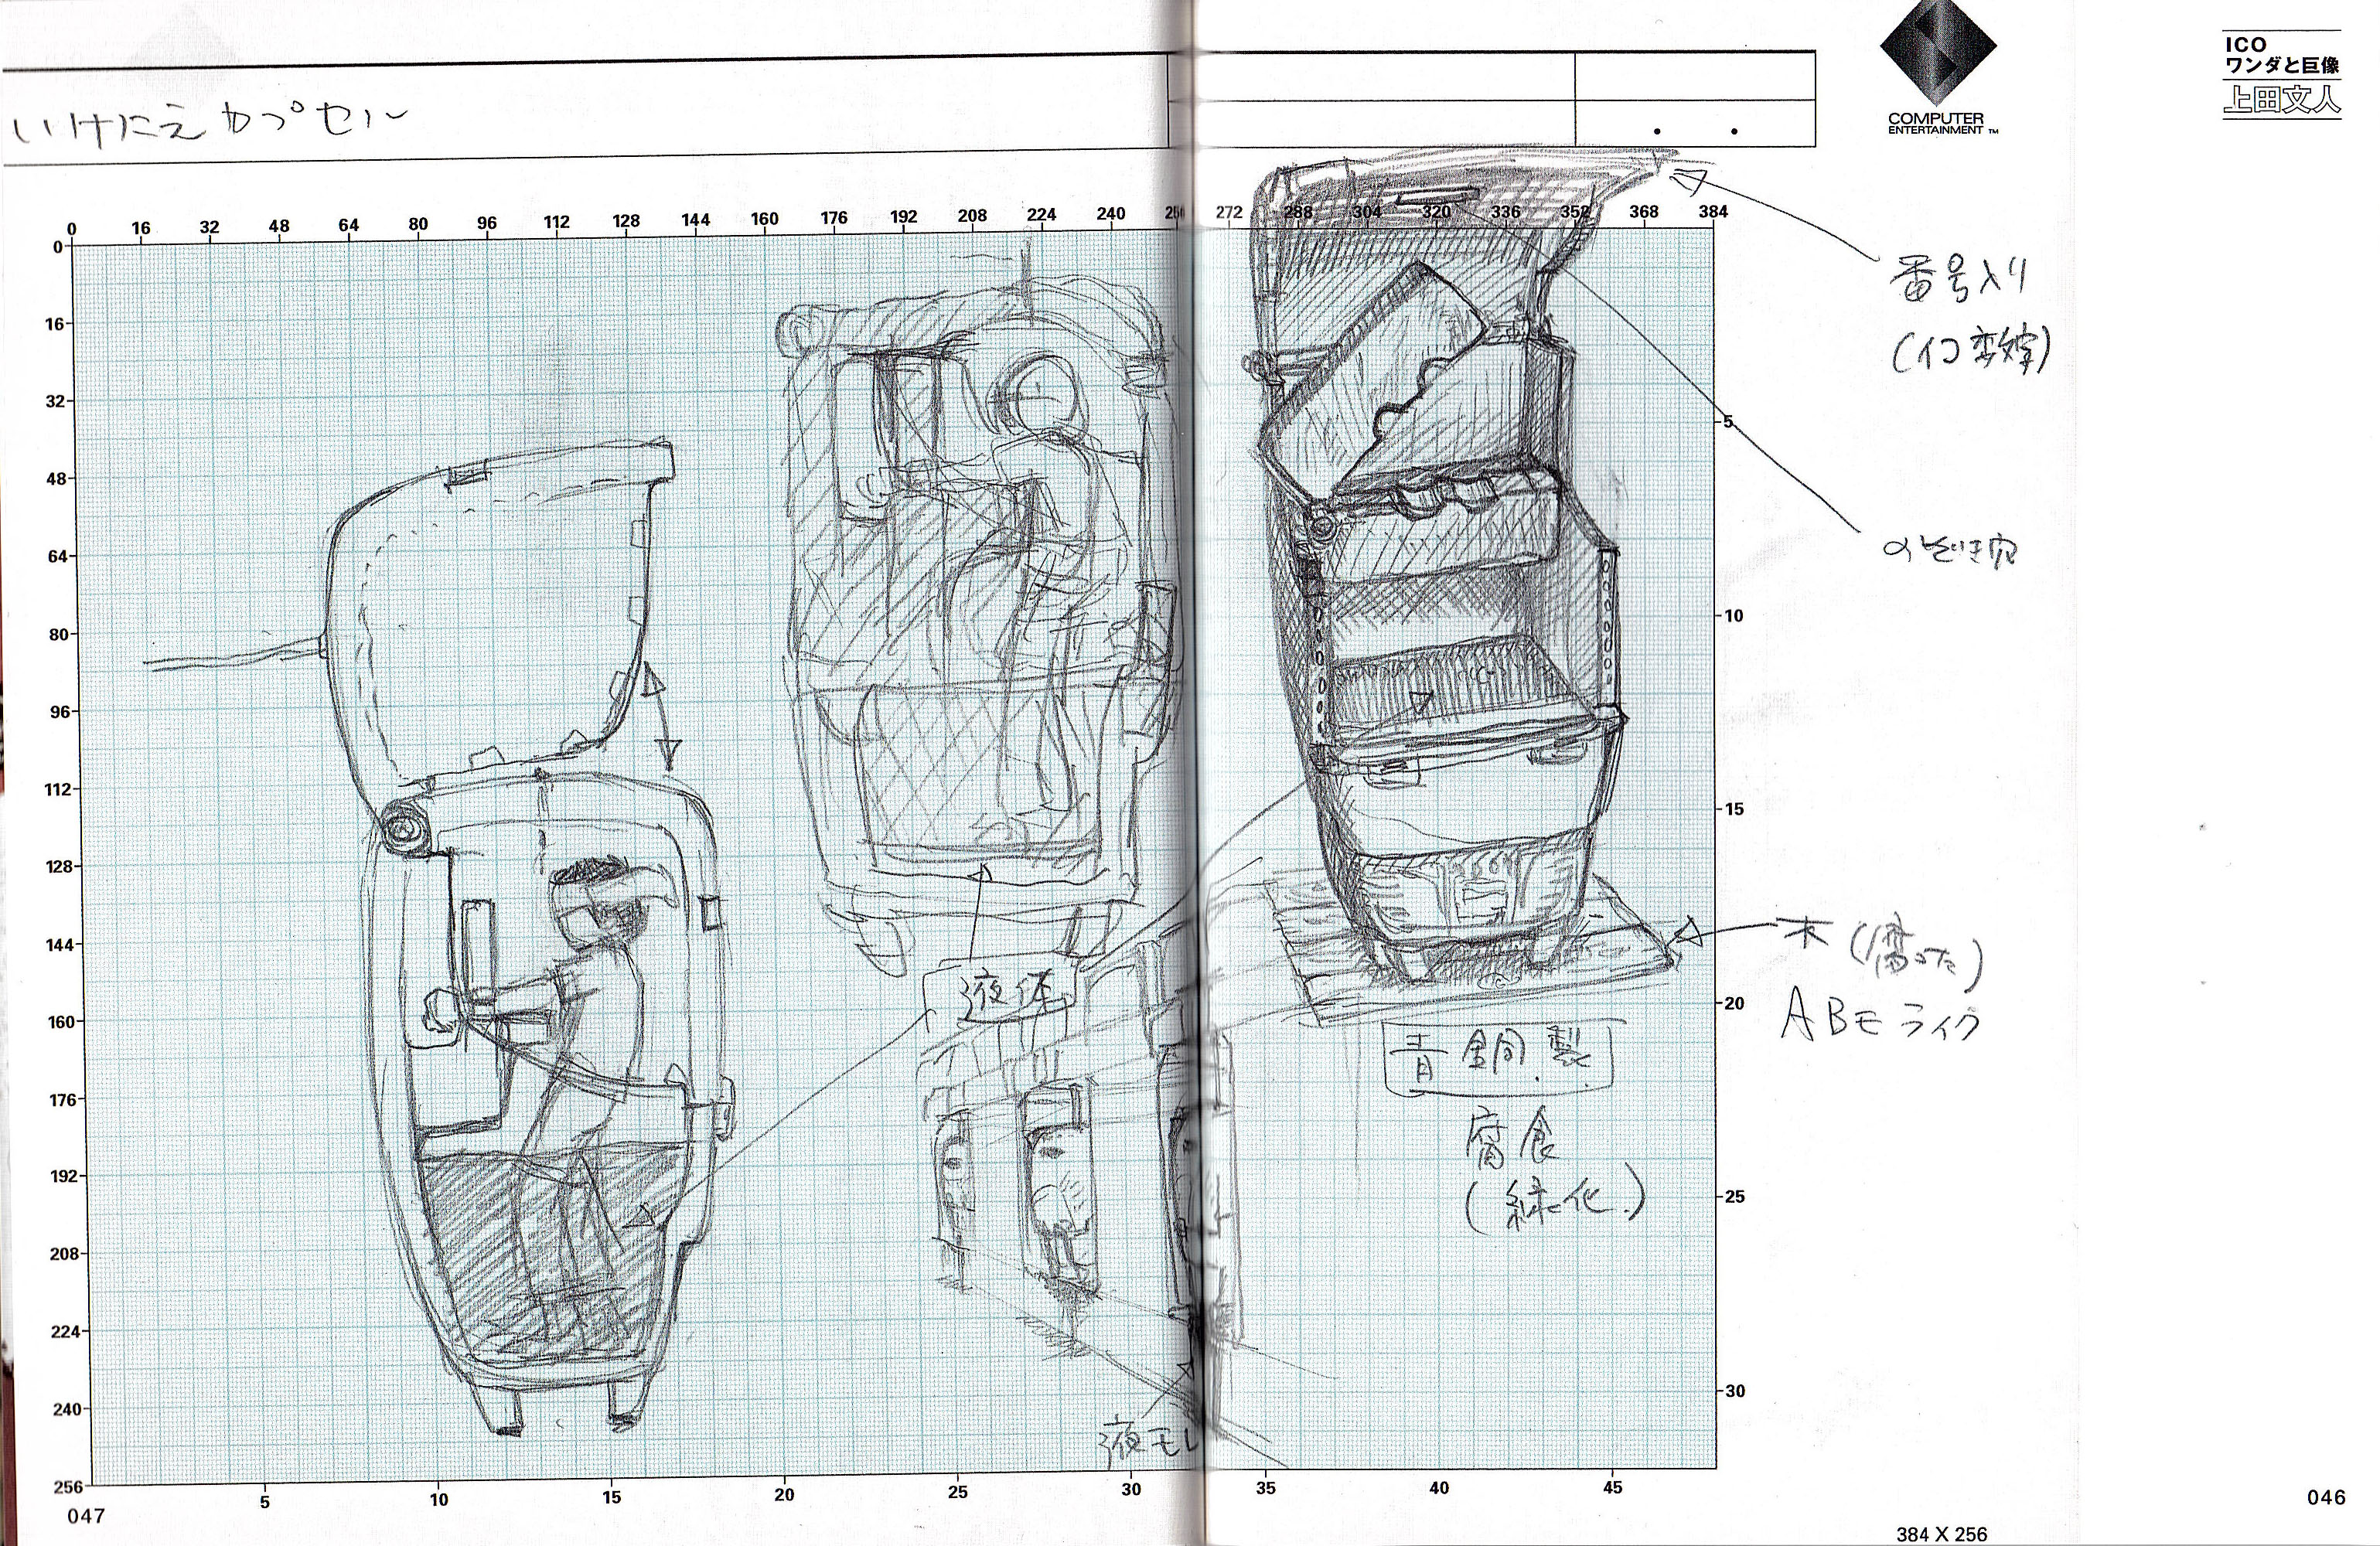 いけにえカプセル
COMPUTER
ENTERTAINMENT ™
ICO
ワンダと巨像
上田文人
0 16 32 48 64 80 96 112 128 144 160 176 192 208 224 240 272 288 304 320 336 352 368 384
0
16
32
48
64
80
96
112
128
144
160
176
192
208
224
240
256
5
10
15
20
25
30
番号入り
(イコ文字)
のぞき穴
木(腐った)
ABEライク
液体
青銅製
腐食
(緑化)
液モレ
5 10 15 20 25 30 35 40 45
047
046
384 X 256